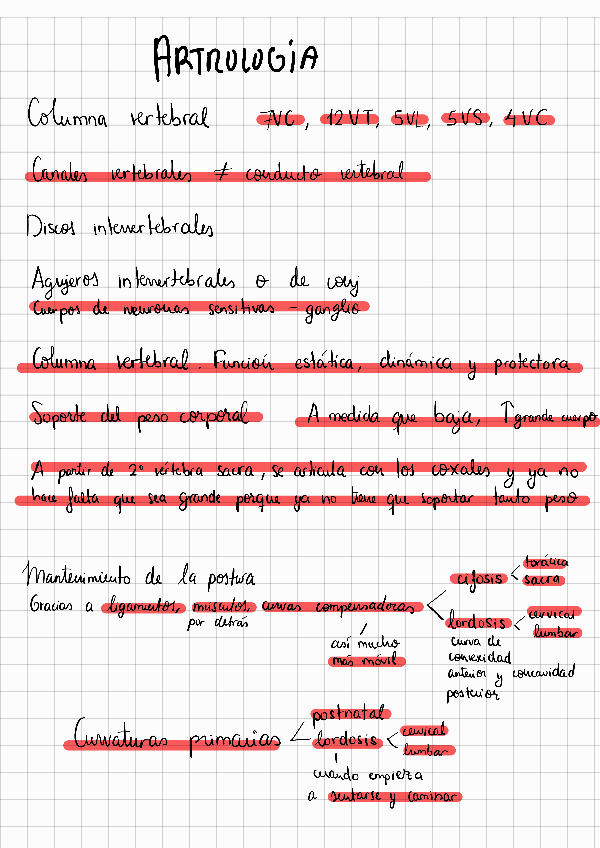 ARTROLOGÍA
Columna vertebral 7VC, 12VT, 5VL, 5VS, 4VC
Canales vertebrales ≠ conducto vertebral
Discos intervertebrales
Agujeros intervertebrales o de conj
Cuerpos de neuronas sensitivas - ganglio
Columna vertebral. Función estática, dinámica y protectora
Soporte del peso corporal A medida que baja, ↑ grande cuerpo
A partir de 2º vértebra sacra, se articula con los coxales y ya no
hace falta que sea grande porque ya no tiene que soportar tanto peso
Mantenimiento de la postura
Gracias a ligamentos, músculos, curvas compensadoras < cifosis < torácica
sacra
por detrás
lordosis < cervical
lumbar
así mucho
más móvil
curva de
convexidad
anterior y concavidad
posterior
Curvaturas primarias < postnatal
lordosis < cervical
lumbar
cuando empieza
a sentarse y caminar